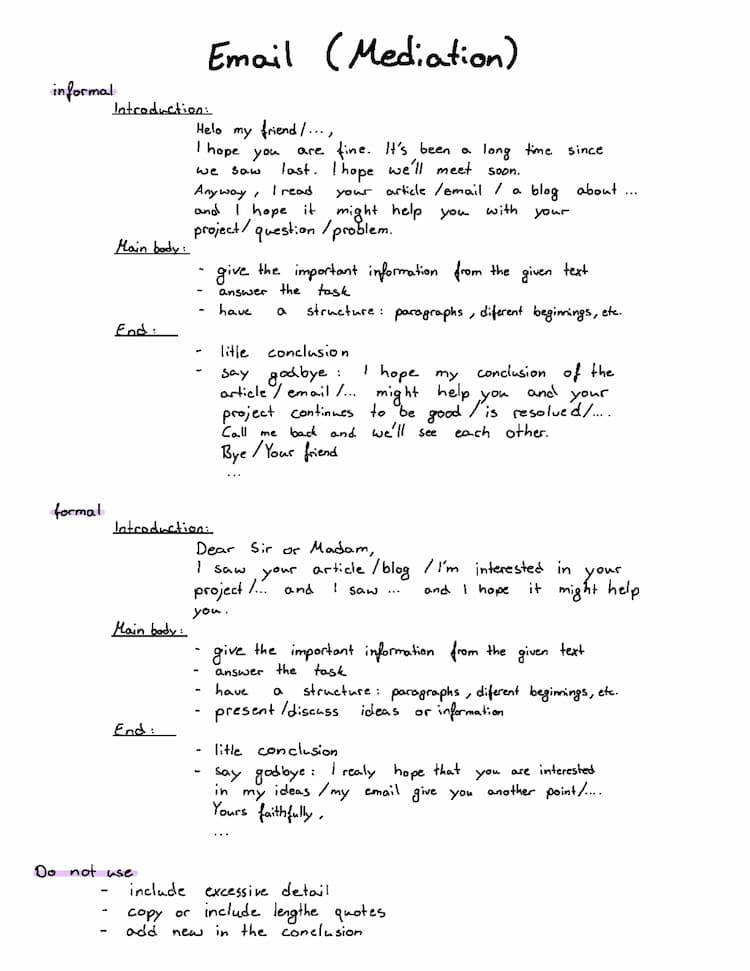 Email (Mediation)
informal
Introduction:
Helo my friend/...,
I hope you are fine. It's been a long time since
we saw last. I hope we'll meet soon.
Anyway, I read your article/email / a blog about ...
and I hope it might help you with your
project/question/problem.
Main body:
- give the important information from the given text
- answer the task
- have a structure: paragraphs, diferent beginnings, etc.
End:
- litle conclusion
- say godbye: I hope my conclusion of the
article/email/... might help you and your
project continues to be good/is resolved/....
Call me back and we'll see each other.
Bye/Your friend
...
formal
Introduction:
Dear Sir or Madam,
I saw your article/blog /I'm interested in your
project/... and I saw ... and I hope it might help
you.
Main body:
- give the important information from the given text
- answer the task
- have a structure: paragraphs, diferent beginnings, etc.
- present/discuss ideas or information
End:
- litle conclusion
- say godbye: I realy hope that you are interested
in my ideas/my email give you another point/....
Yours faithfully,
...
Do not use
- include excessive detail
- copy or include lengthe quotes
- add new in the conclusion